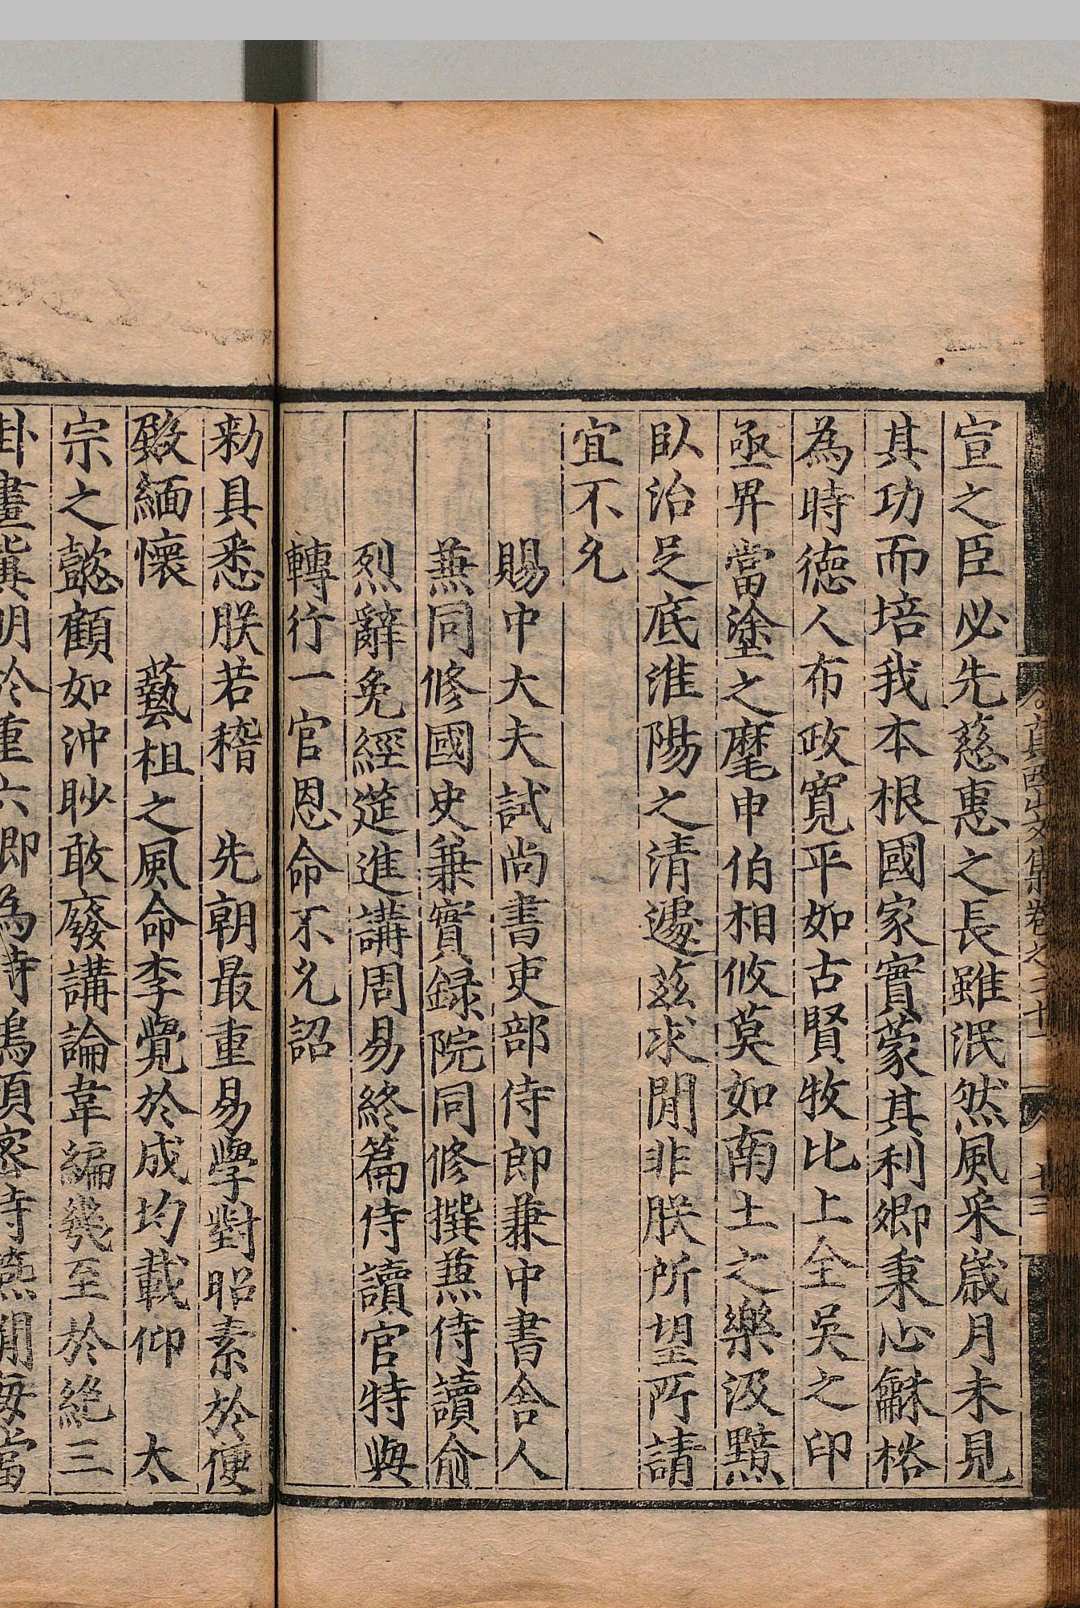 宣之臣必先慈惠之長雖泯然風采歲月未見
其功而培我本根國家實蒙其利卿秉心龢格
為時德人布政寬平如古賢牧比上全吳之印
亟畀當塗之麾申伯相攸莫如南土之樂汲黯
臥治足底淮陽之清遽茲求閒非朕所望所請
宜不允
賜中大夫試尚書吏部侍郎兼中書舍人
兼同修國史兼實録院同修撰兼侍讀俞
烈辭免經筵進講周易終篇侍讀官特與
轉行一官恩命不允詔
勑具悉朕若稽 先朝最重易學對昭素於便
殿緬懷 藝祖之風命李覺於成均載仰 太
宗之懿顧如沖眇敢廢講論韋編幾至於絕三
卦畫冀明於重六卿為時鴻碩密侍燕閒每當
真西山文集卷之二十一